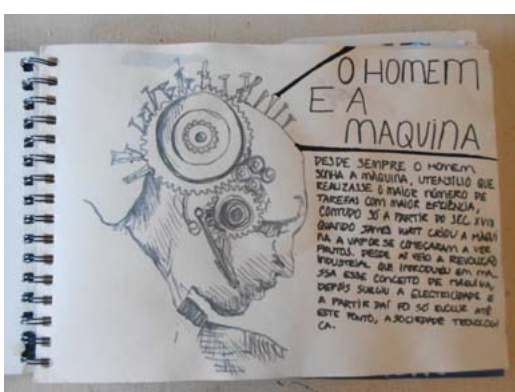 O HOMEM
E A
MAQUINA
DESDE SEMPRE O HOMEM
SONHA A MÁQUINA, UTENSÍLIO QUE
REALIZASSE O MAIOR NÚMERO DE
TAREFAS COM MAIOR EFICIÊNCIA.
CONTUDO SÓ A PARTIR DO SEC. XVIII
QUANDO JAMES WATT CRIOU A MÁQUI
NA A VAPOR SE COMEÇARAM A VER
FRUTOS. DESDE AÍ VEIO A REVOLUÇÃO
INDUSTRIAL QUE INTRODUZIU EM MA
SSA ESSE CONCEITO DE MÁQUINA,
DEPOIS SURGIU A ELECTRICIDADE E
A PARTIR DAÍ FOI SÓ EVOLUIR ATÉ
ESTE PONTO, A SOCIEDADE TECNOLÓGI
CA.